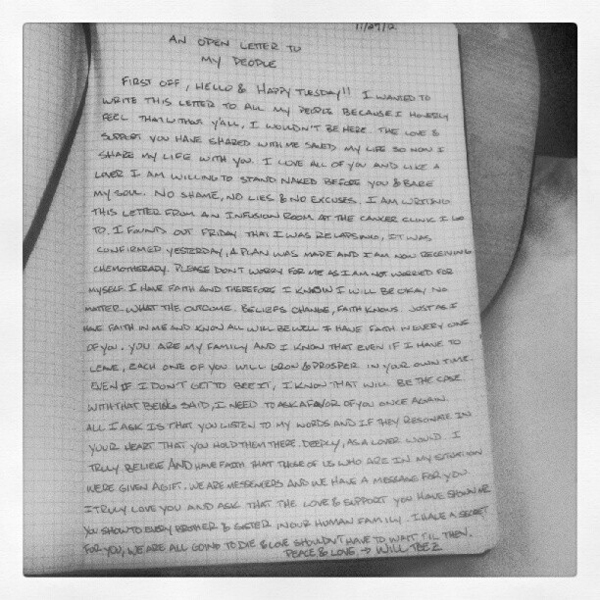 11/27/12
AN OPEN LETTER TO
MY PEOPLE
FIRST OFF, HELLO & HAPPY TUESDAY!! I WANTED TO
WRITE THIS LETTER TO ALL MY PEOPLE BECAUSE I HONESTLY
FEEL THAT WITHOUT Y'ALL, I WOULDN'T BE HERE. THE LOVE &
SUPPORT YOU HAVE SHARED WITH ME SAVED MY LIFE SO NOW I
SHARE MY LIFE WITH YOU. I LOVE ALL OF YOU AND LIKE A
LOVER I AM WILLING TO STAND NAKED BEFORE YOU & BARE
MY SOUL. NO SHAME, NO LIES & NO EXCUSES. I AM WRITING
THIS LETTER FROM AN INFUSION ROOM AT THE CANCER CLINIC I GO
TO. I FOUND OUT FRIDAY THAT I WAS RELAPSING, IT WAS
CONFIRMED YESTERDAY, A PLAN WAS MADE AND I AM NOW RECEIVING
CHEMOTHERAPY. PLEASE DON'T WORRY FOR ME AS I AM NOT WORRIED FOR
MYSELF. I HAVE FAITH AND THEREFORE I KNOW I WILL BE OKAY NO
MATTER WHAT THE OUTCOME. BELIEFS CHANGE, FAITH KNOWS. JUST AS I
HAVE FAITH IN ME AND KNOW ALL WILL BE WELL I HAVE FAITH IN EVERY ONE
OF YOU. YOU ARE MY FAMILY AND I KNOW THAT EVEN IF I HAVE TO
LEAVE, EACH ONE OF YOU WILL GROW & PROSPER IN YOUR OWN TIME.
EVEN IF I DON'T GET TO SEE IT, I KNOW THAT WILL BE THE CASE.
WITH THAT BEING SAID, I NEED TO ASK A FAVOR OF YOU ONCE AGAIN.
ALL I ASK IS THAT YOU LISTEN TO MY WORDS AND IF THEY RESONATE IN
YOUR HEART THAT YOU HOLD THEM THERE. DEEPLY, AS A LOVER WOULD. I
TRULY BELIEVE AND HAVE FAITH THAT THOSE OF US WHO ARE IN MY SITUATION
WERE GIVEN A GIFT. WE ARE MESSENGERS AND WE HAVE A MESSAGE FOR YOU.
I TRULY LOVE YOU AND ASK THAT THE LOVE & SUPPORT YOU HAVE SHOWN ME
YOU SHOW TO EVERY BROTHER & SISTER IN OUR HUMAN FAMILY. I HAVE A SECRET
FOR YOU, WE ARE ALL GOING TO DIE & LOVE SHOULDN'T HAVE TO WAIT TIL THEN.
PEACE & LOVE → WILL TEEZ